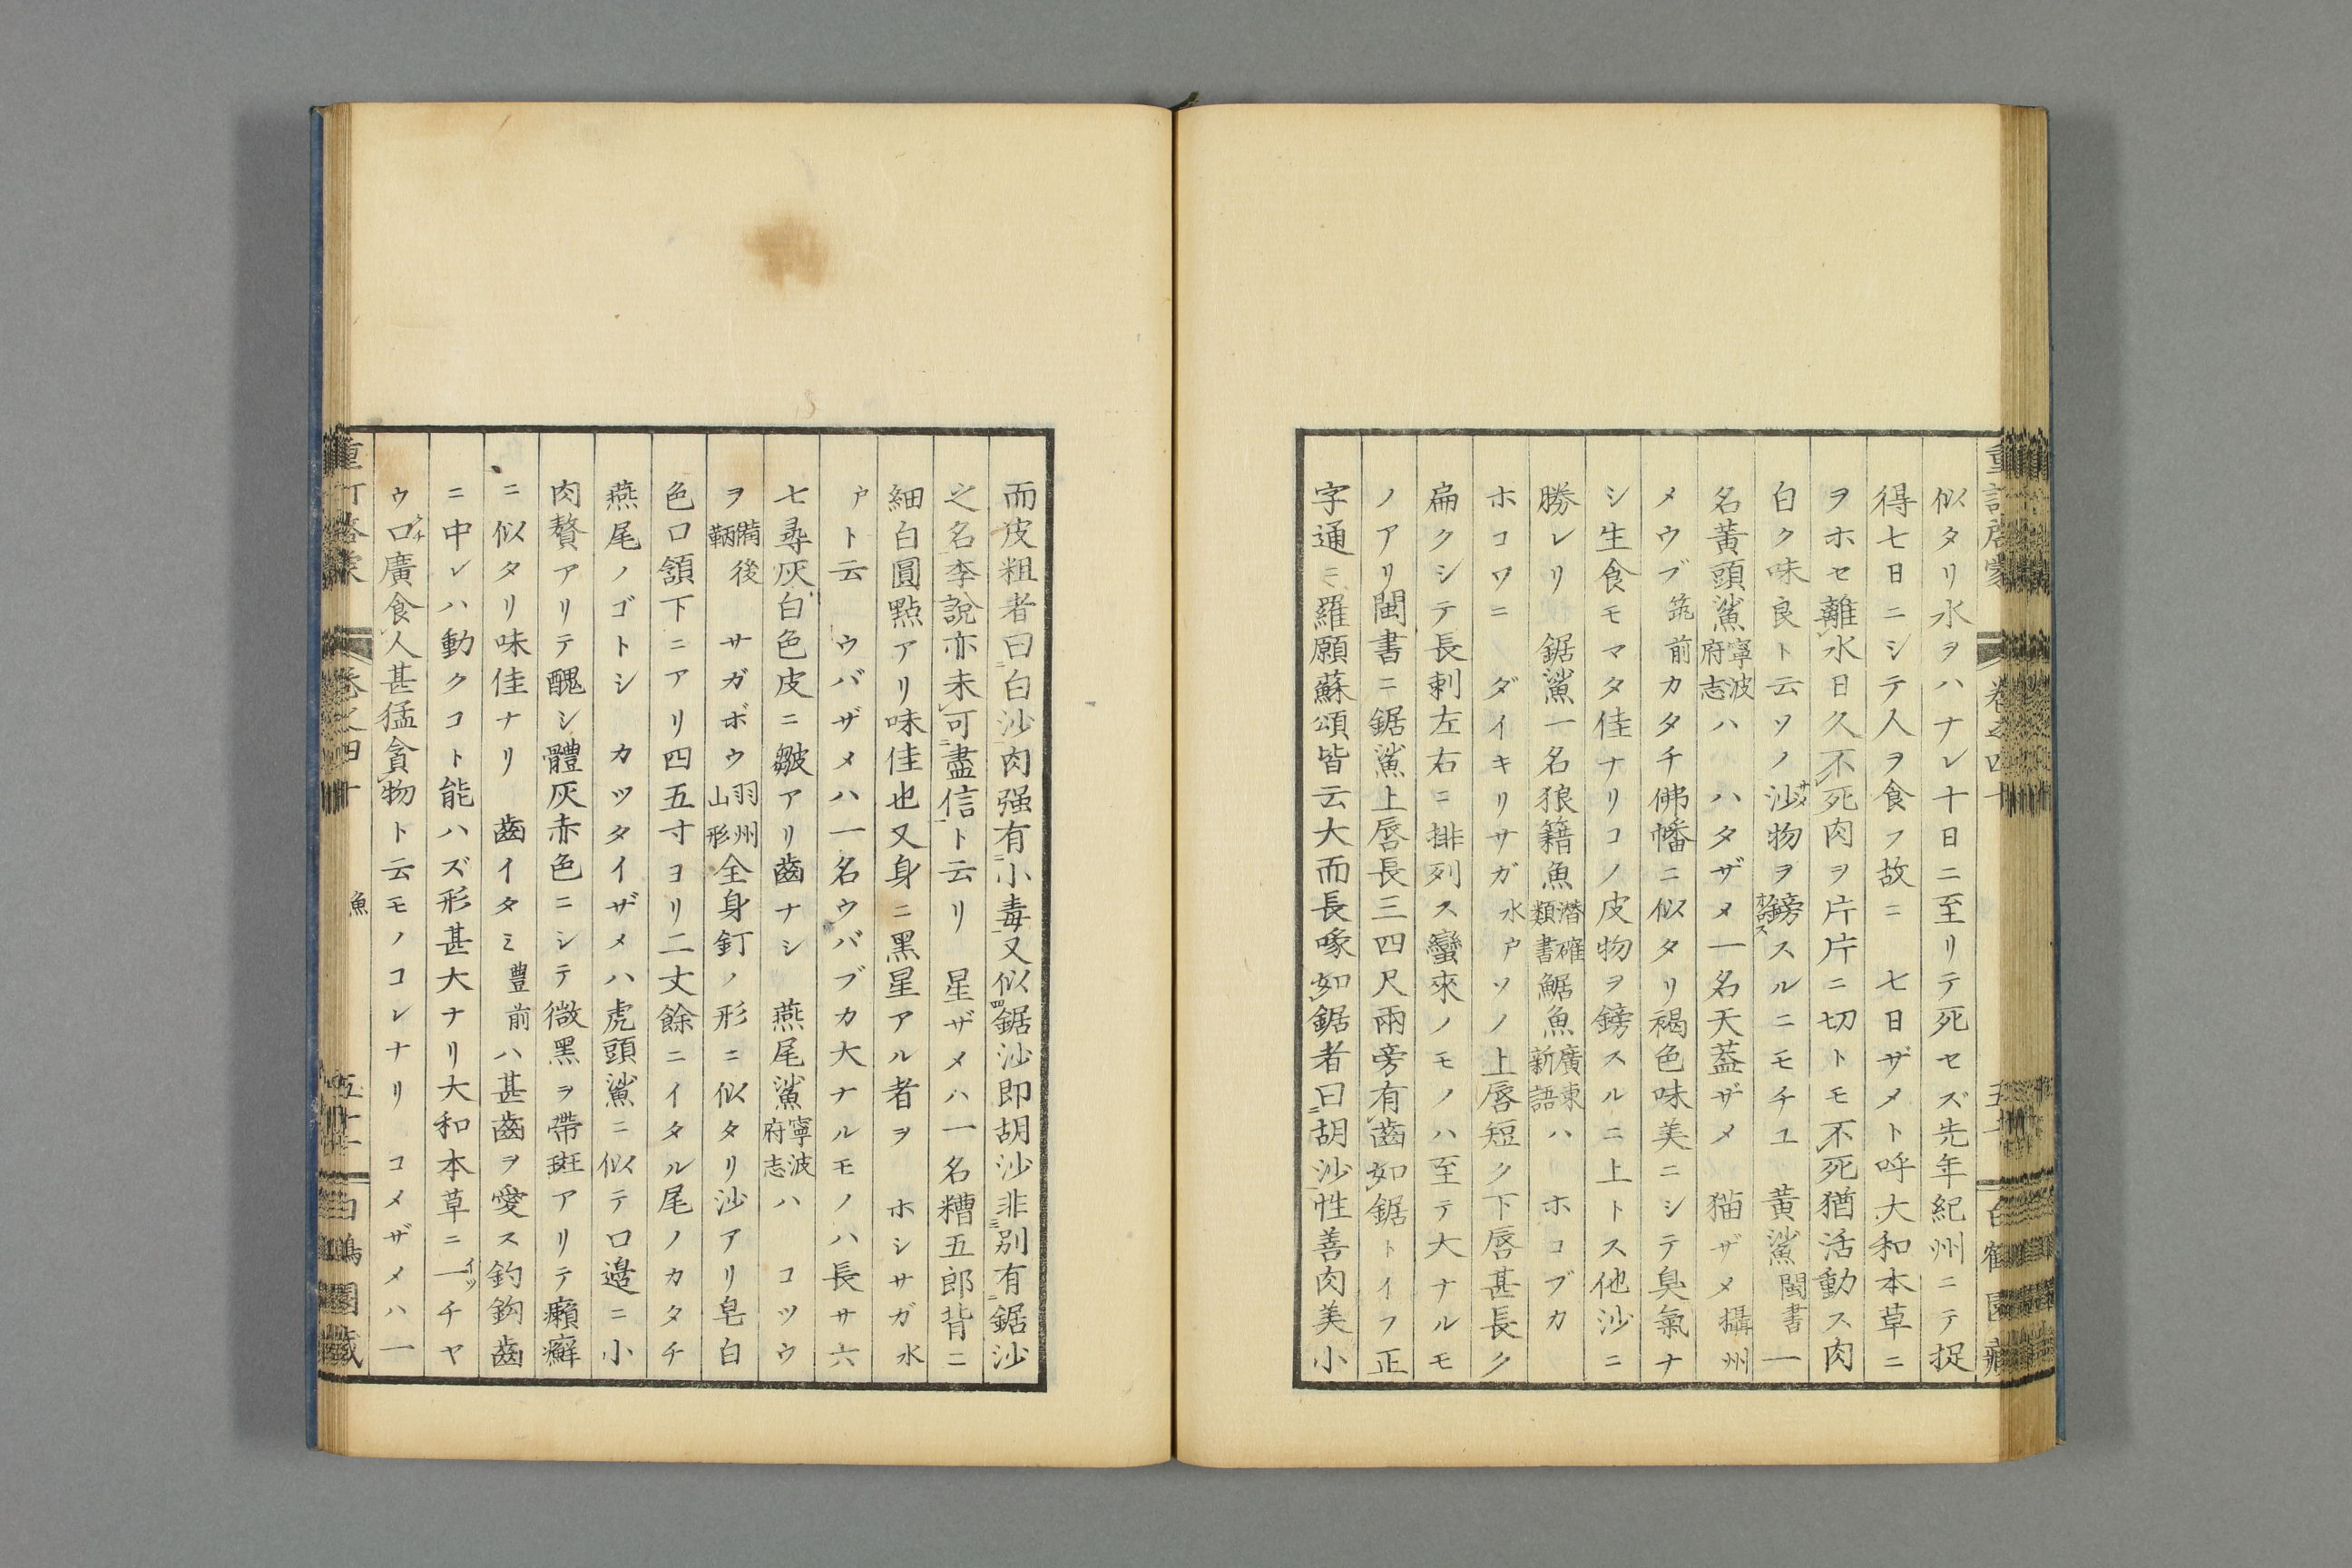 似タリ水ヲハナレ十日ニ至リテ死セズ先年紀州ニテ捉
得七日ニシテ人ヲ食フ故ニ 七日ザメト呼大和本草ニ
ヲホセ離水日久不死肉ヲ片片ニ切トモ不死猶活動ス肉
白ク味良ト云ソノ沙物ヲ鎊スルニモチユ 黃鯊閩書一
名黃頭鯊寧波府志ハ ハタザメ一名天蓋ザメ 猫ザメ攝州
メウブ筑前カタチ佛幡ニ似タリ褐色味美ニシテ臭氣ナ
シ生食モマタ佳ナリコノ皮物ヲ鎊スルニ上トス他沙ニ
勝レリ 鋸鯊一名狼籍魚潜確類書鋸魚廣東新語ハ ホコブカ
ホコワニ ダイキリサガ水戸ソノ上唇短ク下唇甚長ク
扁クシテ長刺左右ニ排列ス蠻來ノモノハ至テ大ナルモ
ノアリ閩書ニ鋸鯊上唇長三四尺兩旁有齒如鋸トイフ正
字通ニ羅願蘇頌皆云大而長喙如鋸者曰胡沙性善肉美小
而皮粗者曰白沙肉强有小毒又似鋸沙即胡沙非別有鋸沙
之名李說亦未可盡信ト云リ 星ザメハ一名糟五郎背ニ
細白圓點アリ味佳也又身ニ黑星アル者ヲ ホシサガ水
戸ト云 ウバザメハ一名ウバブカ大ナルモノハ長サ六
七尋灰白色皮ニ皺アリ齒ナシ 燕尾鯊寧波府志ハ コツウ
ヲ備後鞆 サガボウ羽州山形全身釘ノ形ニ似タリ沙アリ皂白
色口頷下ニアリ四五寸ヨリ二丈餘ニイタル尾ノカタチ
燕尾ノゴトシ カツタイザメハ虎頭鯊ニ似テ口邉ニ小
肉贅アリテ醜シ體灰赤色ニシテ微黑ヲ帶斑アリテ癩癬
ニ似タリ味佳ナリ 齒イタミ豊前ハ甚齒ヲ愛ス釣鈎齒
ニ中レハ動クコト能ハズ形甚大ナリ大和本草ニ一チヤ
ウ口廣食人甚猛貪物ト云モノコレナリ コメザメハ一
魚